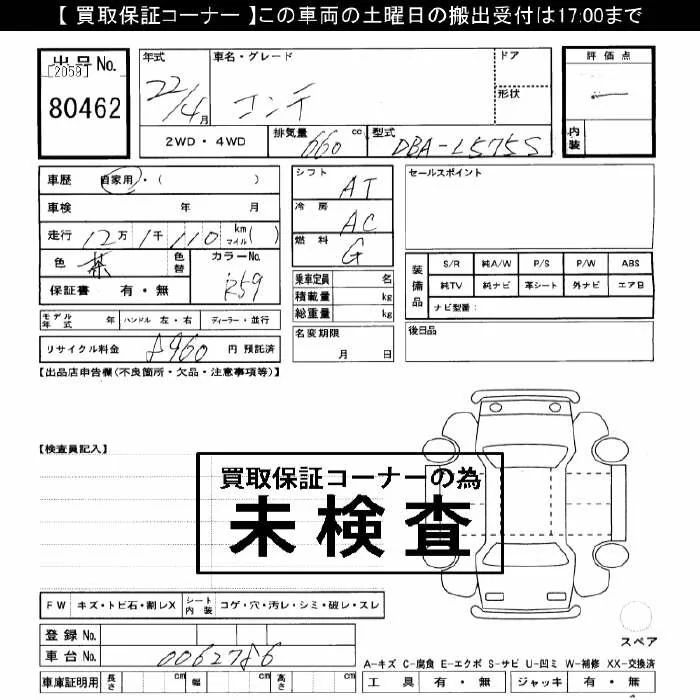 【 買取保証コーナー 】この車両の土曜日の搬出受付は17:00まで
出品No.
[2059]
80462
年式
22/4月
車名・グレード
コンテ
ドア
形状
評価点
内装
2WD・4WD
排気量 660 cc
型式 DBA-L575S
車歴 自家用・( )
車検 年 月
走行 12万1千110 km マイル( )
色 茶
色替
カラーNo. R59
保証書 有・無
シフト AT
冷房 AC
燃料 G
乗車定員 名
積載量 kg
総重量 kg
セールスポイント
装備品
S/R 純A/W P/S P/W ABS
純TV 純ナビ 革シート 外ナビ エアB
ナビ型番:
モデル年式 年 ハンドル 左・右 ディーラー・並行
名変期限 月 日
後日品
リサイクル料金 8960 円 預託済
【出品店申告欄(不良箇所・欠品・注意事項等)】
【検査員記入】
買取保証コーナーの為
未検査
FW キズ・トビ石・割レX
シート内装 コゲ・穴・汚レ・シミ・破レ・スレ
登録No.
車台No. 0062786
車庫証明用 長さ cm 幅 cm 高さ cm
スペア
A-キズ C-腐食 E-エクボ S-サビ U-凹ミ W-補修 XX-交換済
工具 有・無 ジャッキ 有・無